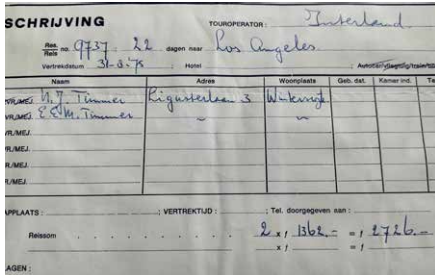 SCHRIJVING TOUROPERATOR: Interland
Res. Reis no. 9737 - 22 dagen naar Los Angeles
Vertrekdatum 31-3-'78 : Hotel : Autotier/vliegtuig/trein/
Naam Adres Woonplaats Geb. dat. Kamer ind. Te
VR/MEJ. Timmer Ligusterlaan 3 Winterswijk
VR/MEJ. E.E.M. Timmer " "
VR/MEJ.
VR/MEJ.
R./MEJ.
R./MEJ.
R./MEJ.
APPLAATS : ; VERTREKTIJD : : Tel. doorgegeven aan :
Reissom 2 x f 1362.- = f 2726.-
x f = f
AGEN :